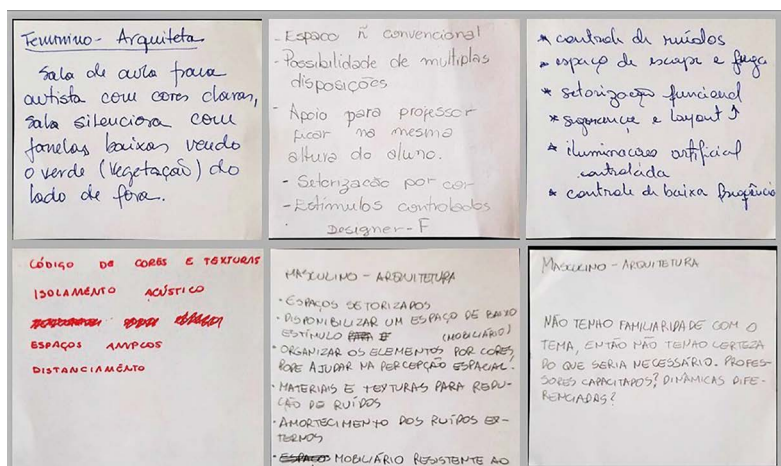 Feminino - Arquiteta
Sala de aula para
autista com cores claras,
sala silenciosa com
janelas baixas vendo
o verde (vegetação) do
lado de fora.
- Espaço ñ convencional
- Possibilidade de multiplas
disposições
- Apoio para professor
ficar na mesma
altura do aluno.
- Setorização por cor
- Estímulos controlados
Designer - F
* controle de ruídos
* espaço de escape e fuga
* setorização funcional
* segurança e layout ↑
* iluminacões artificial
controlada
* controle de baixa frequência
CÓDIGO DE CORES E TEXTURAS
ISOLAMENTO ACÚSTICO
ESPAÇOS AMPLOS
DISTANCIAMENTO
MASCULINO - ARQUITETURA
• ESPAÇOS SETORIZADOS
• DISPONIBILIZAR UM ESPAÇO DE BAIXO
ESTÍMULO (MOBILIÁRIO)
• ORGANIZAR OS ELEMENTOS POR CORES,
PODE AJUDAR NA PERCEPÇÃO ESPACIAL.
• MATERIAIS E TEXTURAS PARA REDU-
ÇÃO DE RUÍDOS
• AMORTECIMENTO DOS RUÍDOS EX-
TERNOS
• MOBILIÁRIO RESISTENTE AO
MASCULINO - ARQUITETURA
NÃO TENHO FAMILIARIDADE COM O
TEMA, ENTÃO NÃO TENHO CERTEZA
DO QUE SERIA NECESSÁRIO. PROFES-
SORES CAPACITADOS? DINÂMICAS DIFE-
RENCIADAS?